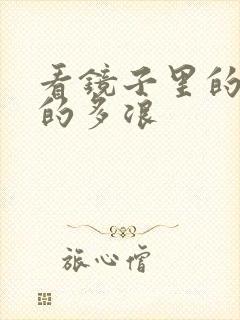 看镜子里的
的多浪
旅心僧